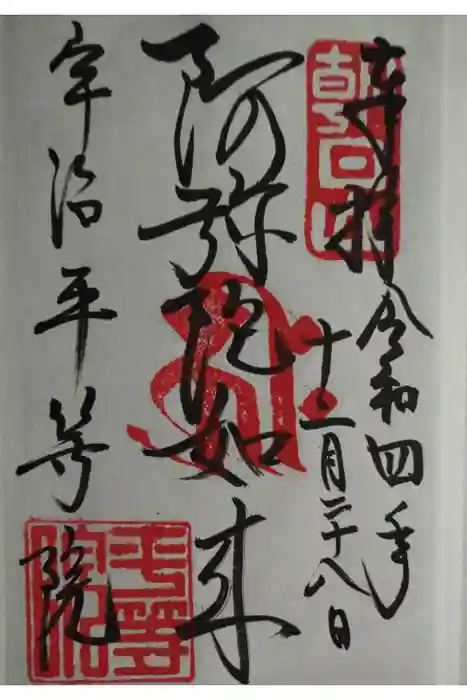 奉拝 令和四年
十二月二十八日
阿弥陀如来
宇治平等院
朝日山
平等院